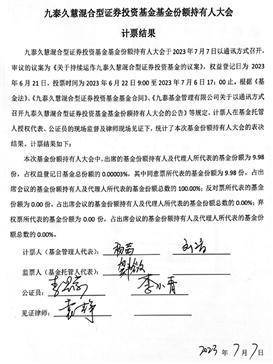 九泰久慧混合型证券投资基金基金份额持有人大会
计票结果
九泰久慧混合型证券投资基金基金份额持有人大会于 2023 年 7 月 7 日以通讯方式召开,
审议的议案为《关于持续运作九泰久慧混合型证券投资基金的议案》,权益登记日为 2023
年 6 月 21 日,投票时间为 2023 年 6 月 22 日 9:00 至 2023 年 7 月 6 日 17:00 止。根据《基
金法》、《九泰久慧混合型证券投资基金基金合同》、《九泰基金管理有限公司关于以通讯方式
召开九泰久慧混合型证券投资基金基金份额持有人大会的公告》等规定,计票人在基金托管
人授权代表、公证员的现场监督及律师现场见证下,统计了本次基金份额持有人大会的表决
结果,计票结果如下:
本次基金份额持有人大会中,出席的基金份额持有人及代理人所代表的基金份额为 9.98
份,占权益登记日基金总份额的 0.00003%。其中同意票所代表的基金份额为 9.98 份,占出
席会议的基金份额持有人及代理人所代表的基金份额总数的 100.00%;反对票所代表的基金
份额为 0.00 份,占出席会议的基金份额持有人及代理人所代表的基金份额总数的 0.00%;弃
权票所代表的基金份额为 0.00 份,占出席会议的基金份额持有人及代理人所代表的基金份
额总数的 0.00%。
计票人(基金管理人代表):
监票人(基金托管人代表):
公证员: 李小青
见证律师:
2023 年 7 月 7 日